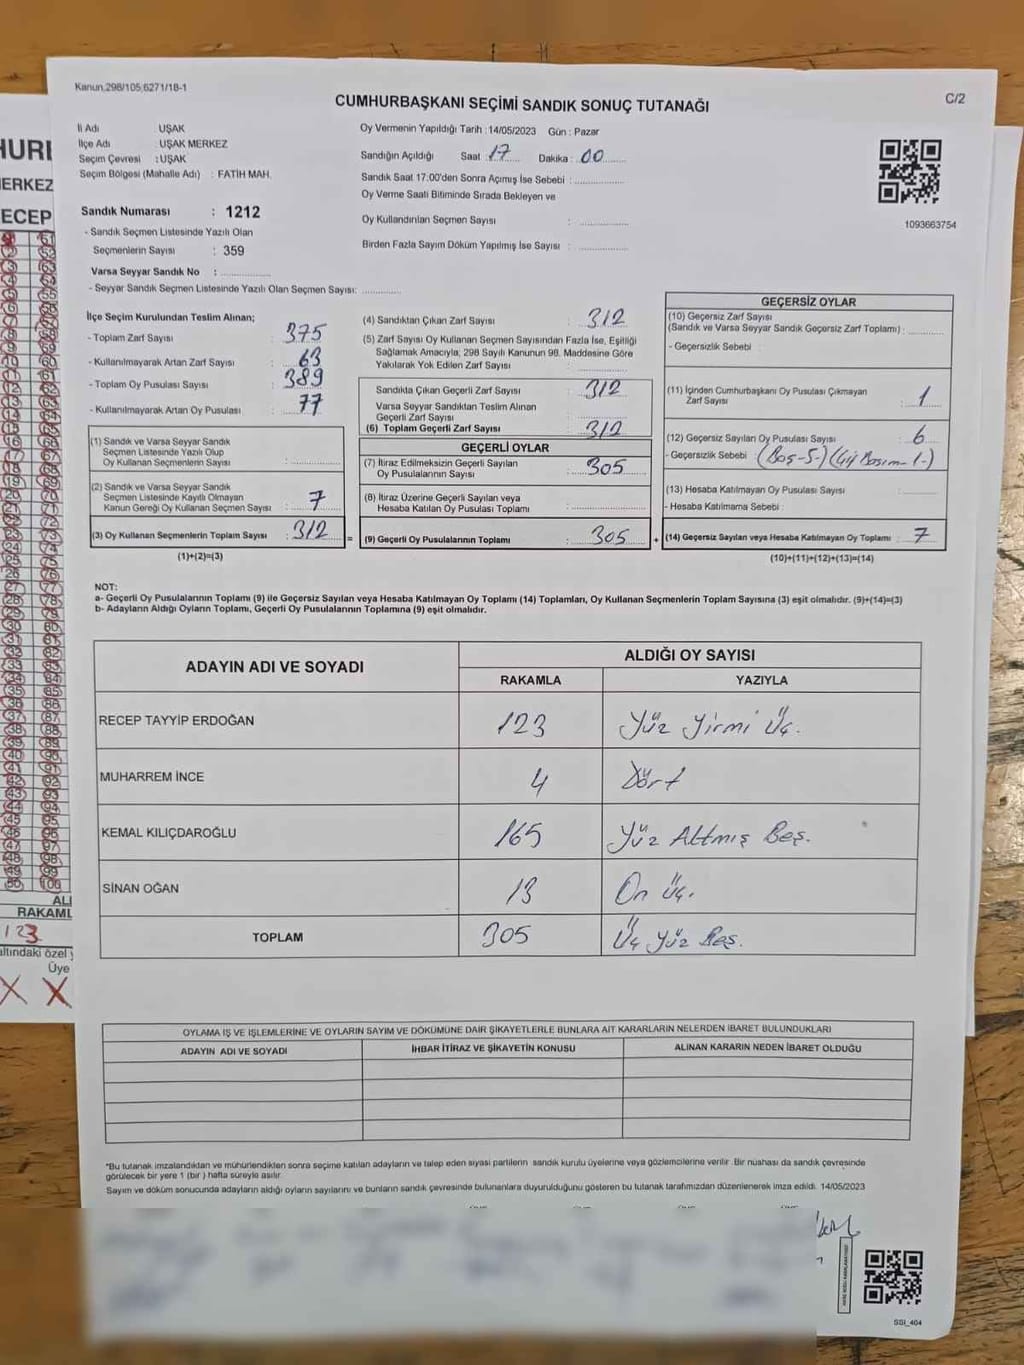 Kanun,298/105,6271/18-1
C/2
CUMHURBAŞKANI SEÇİMİ SANDIK SONUÇ TUTANAĞI
İl Adı UŞAK
İlçe Adı : UŞAK MERKEZ
Seçim Çevresi : UŞAK
Seçim Bölgesi (Mahalle Adı) : FATİH MAH.
Sandık Numarası : 1212
- Sandık Seçmen Listesinde Yazılı Olan
Seçmenlerin Sayısı : 359
Varsa Seyyar Sandık No :
- Seyyar Sandık Seçmen Listesinde Yazılı Olan Seçmen Sayısı:
Oy Vermenin Yapıldığı Tarih : 14/05/2023 Gün : Pazar
Sandığın Açıldığı Saat : 17 Dakika : 00
Sandık Saat 17:00'den Sonra Açımış İse Sebebi :
Oy Verme Saati Bitiminde Sırada Bekleyen ve
Oy Kullandırılan Seçmen Sayısı :
Birden Fazla Sayım Döküm Yapılmış İse Sayısı :
1093663754
İlçe Seçim Kurulundan Teslim Alınan;
- Toplam Zarf Sayısı : 375
- Kullanılmayarak Artan Zarf Sayısı : 63
- Toplam Oy Pusulası Sayısı : 389
- Kullanılmayarak Artan Oy Pusulası : 77
(1) Sandık ve Varsa Seyyar Sandık
Seçmen Listesinde Yazılı Olup
Oy Kullanan Seçmenlerin Sayısı :
(2) Sandık ve Varsa Seyyar Sandık
Seçmen Listesinde Kayıtlı Olmayan
Kanun Gereği Oy Kullanan Seçmen Sayısı : 7
(3) Oy Kullanan Seçmenlerin Toplam Sayısı : 312 =
(1)+(2)=(3)
(4) Sandıktan Çıkan Zarf Sayısı : 312
(5) Zarf Sayısı Oy Kullanan Seçmen Sayısından Fazla İse, Eşitliği
Sağlamak Amacıyla; 298 Sayılı Kanunun 98. Maddesine Göre
Yakılarak Yok Edilen Zarf Sayısı :
Sandıkta Çıkan Geçerli Zarf Sayısı : 312
Varsa Seyyar Sandıktan Teslim Alınan
Geçerli Zarf Sayısı :
(6) Toplam Geçerli Zarf Sayısı : 312
GEÇERLİ OYLAR
(7) İtiraz Edilmeksizin Geçerli Sayılan
Oy Pusulasının Sayısı : 305
(8) İtiraz Üzerine Geçerli Sayılan veya
Hesaba Katılan Oy Pusulası Toplamı :
(9) Geçerli Oy Pusulalarının Toplamı : 305 +
GEÇERSİZ OYLAR
(10) Geçersiz Zarf Sayısı
(Sandık ve Varsa Seyyar Sandık Geçersiz Zarf Toplamı) :
- Geçersizlik Sebebi :
(11) İçinden Cumhurbaşkanı Oy Pusulası Çıkmayan
Zarf Sayısı : 1
(12) Geçersiz Sayılan Oy Pusulası Sayısı : 6
- Geçersizlik Sebebi : (Boş-5-)
(13) Hesaba Katılmayan Oy Pusulası Sayısı :
- Hesaba Katılmama Sebebi :
(14) Geçersiz Sayılan veya Hesaba Katılmayan Oy Toplamı : 7
(10)+(11)+(12)+(13)=(14)
NOT:
a- Geçerli Oy Pusulalarının Toplamı (9) ile Geçersiz Sayılan veya Hesaba Katılmayan Oy Toplamı (14) Toplamları, Oy Kullanan Seçmenlerin Toplam Sayısına (3) eşit olmalıdır. (9)+(14)=(3)
b- Adayların Aldığı Oyların Toplamı, Geçerli Oy Pusulalarının Toplamına (9) eşit olmalıdır.
ADAYIN ADI VE SOYADI
ALDIĞI OY SAYISI
RAKAMLA YAZIYLA
RECEP TAYYİP ERDOĞAN 123 Yüz Yirmi Üç.
MUHARREM İNCE 4 Dört
KEMAL KILIÇDAROĞLU 165 Yüz Altmış Beş.
SİNAN OĞAN 13 On Üç.
TOPLAM 305 Üç Yüz Beş.
OYLAMA İŞ VE İŞLEMLERİNE VE OYLARIN SAYIM VE DÖKÜMÜNE DAİR ŞİKAYETLERLE BUNLARA AİT KARARLARIN NELERDEN İBARET BULUNDUKLARI
ADAYIN ADI VE SOYADI İHBAR İTİRAZ VE ŞİKAYETİN KONUSU ALINAN KARARIN NEDEN İBARET OLDUĞU
*Bu tutanak imzalandıktan ve mühürlendikten sonra seçime katılan adayların ve talep eden siyasi partilerin sandık kurulu üyelerine veya gözlemcilerine verilir. Bir nüshası da sandık çevresinde
görülecek bir yere 1 (bir ) hafta süreyle asılır.
Sayım ve döküm sonucunda adayların aldığı oyların sayılarını ve bunların sandık çevresinde bulunanlara duyurulduğunu gösteren bu tutanak tarafımızdan düzenlenerek imza edildi. 14/05/2023
SSI_404
ERKEZ
ECEP
RAKAML
123
altındaki özel
Üye
X X